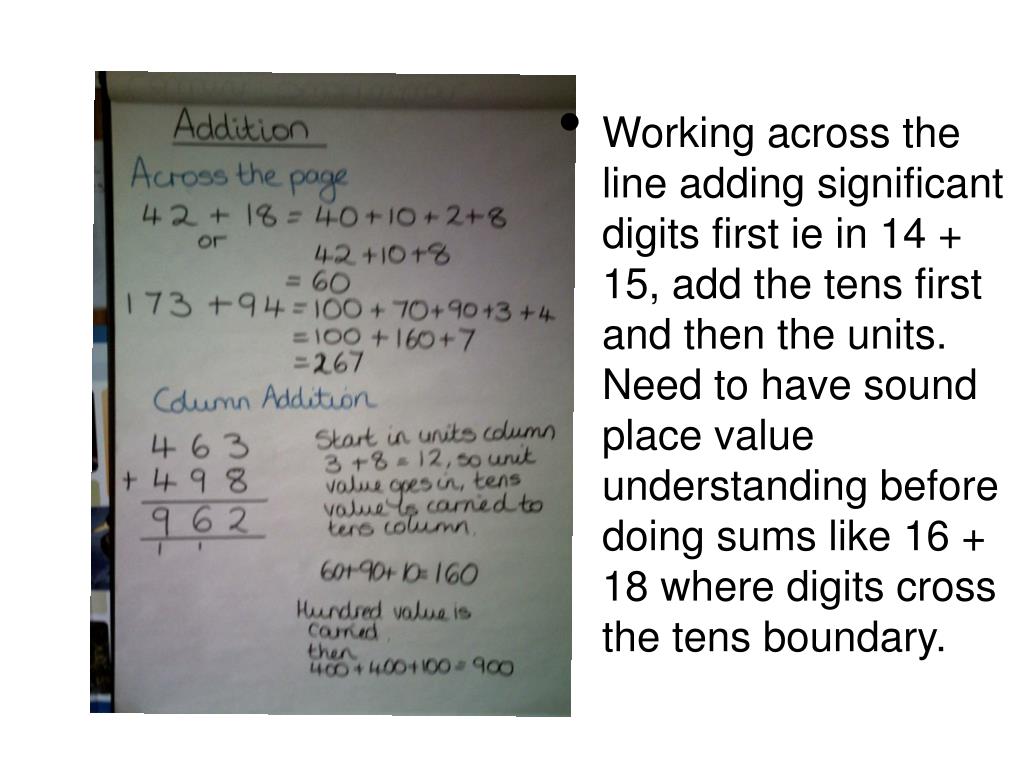 Addition
Across the page
42 + 18 = 40+10+2+8
or
42+10+8
= 60
173 + 94 = 100 + 70+90+3+4
= 100 + 160+7
= 267
Column Addition
463
+ 498
962
1 1
Start in units column
3 + 8 = 12, so unit
value goes in, tens
value is carried to
tens column.
60+90+10=160
Hundred value is
carried.
then
400+400+100 = 900
• Working across the
line adding significant
digits first ie in 14 +
15, add the tens first
and then the units.
Need to have sound
place value
understanding before
doing sums like 16 +
18 where digits cross
the tens boundary.